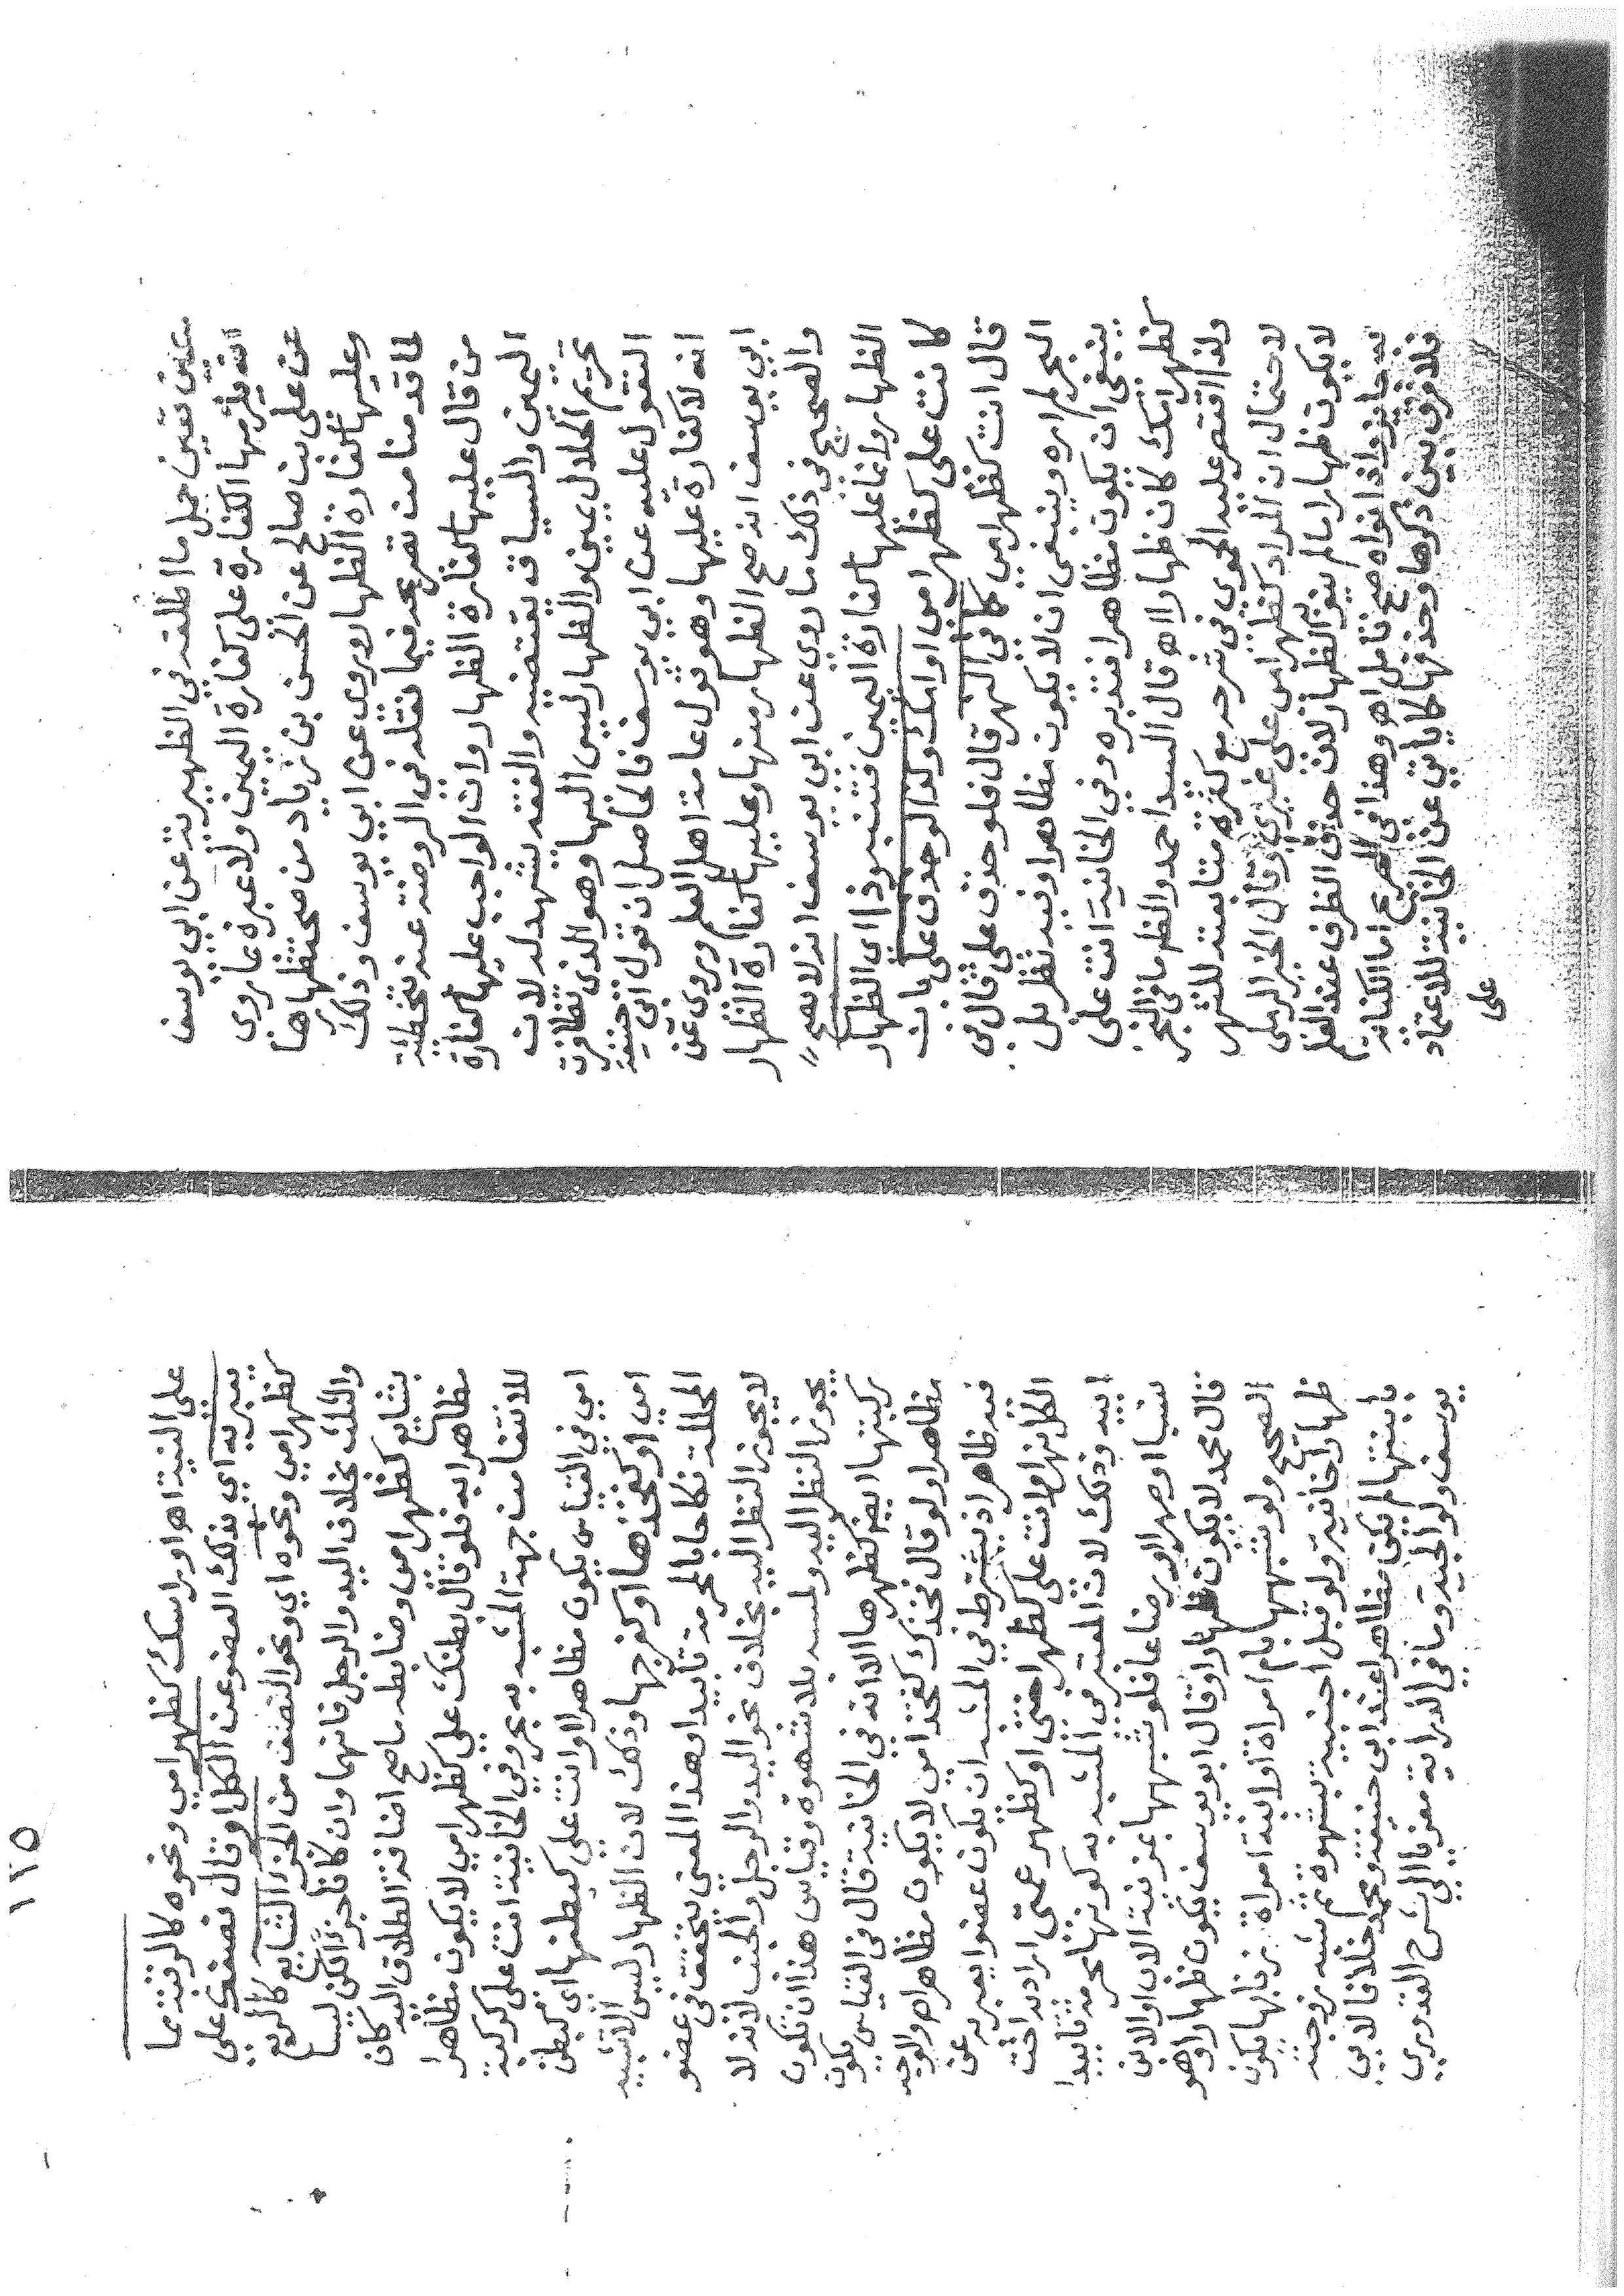 عين تعين حمل ما اطلقه في الظهيرية عن ابي يوسف
انه يلزمها الكفارة على كفارة اليمين ولا عبرة بما روى
عن على بن صالح عن الحسن بن زياد من صحة ظهارها
وعليها كفارة الظهار وروى عن ابي يوسف وذلك
لما قدمنا من تصريحه فيما نقله في الروضة عنه بتخطئة
من قال عليها كفارة الظهار وان الواجب عليها كفارة
اليمين والسياق يقتضيه والفقه يشهد له لان
تحريم الحلال يمين والظهار ليس اليها وهو الذي تظافرت
النقول عليه عن ابي يوسف فالحاصل ان قول ابي حنيفة
انه لا كفارة عليها وهو قول عامة اهل العلم وروى عن
ابي يوسف انه صح الظهار منها وعليها كفارة الظهار
والصحيح في ذلك ما روى عن ابي يوسف انه لا يصح
الظهار وانما عليها كفارة اليمين فتنبه وذا اى الظهار
كانت على كظهر امي او امك وكذا لو حذف على بان
قال انت كظهر امي كما في النهر قال فلو حذف على فقال في
البحر لم اره وينبغى ان لا يكون مظاهرا وفيه نظر بل
ينبغي ان يكون مظاهرا فتدبره وفي الخانية انت على
كظهر امك كان ظهارا اهـ قال السيد احمد والظم ما في البحر
ولذا اقتصر عليه الحموي في شرحه مع كثرة متابعته للنهر
لاحتمال ان المراد كظهر امي على غيري وقال الخير الرملى
لا يكون ظهارا مالم ينو به الظهار لان حذف الظرف عند العلم
به جايز واذا نواه صح تامل اهـ وهذا في الصريح اما الكناية
فلا فرق بين ذكرها وحذفها كما ياتي عن الخانية للاعتماد
على
١٢٥
على النية اهـ او راسك كظهر امي ونحوه كالرقبة مما
يعبر به اي بذلك العضو عن الكل او قال نصفك على
كظهر امي ونحوه اي ونحو النصف من الجزء الشايع كالربع
والثلث بخلاف اليد والرجل فانهما وان كانا جزأ لكن ليسا
بشايع كظهر امي وضابطه ما صح اضافة الطلاق اليه كان
مظاهرا به فلو قال بطنك علي كظهر امي لا يكون مظاهرا
للانتفا من جهة المشبه به بحر وفي الخانية انت على كركبة
امي في القياس يكون مظاهرا او انت علي كبطنها اى كبطن
امي او كفخذها او كفرجها وذلك لان الظهار ليس الا تشبيه
المحللة نكاحا بالمحرمة تابيدا وهذا المعنى يتحقق في عضو
لا يجوز النظر اليه بخلاف نحو اليد والرجل والجنب لانه لا
يجوز النظر اليه ولمسه بلا شهوة وقياس هذا ان تكون
ركبتها ايضا كظهرها الا انه في الخانية قال في القياس يكون
مظاهرا ولو قال فخذك كفخذ امي لا يكون مظاهرا والوجه
فيه ظاهر اذ يشترط في المشبه ان يكون عضوا يعبر به عن
الكل نهر او انت على كظهر اختى او كظهر عمتى اراد به اخت
ابيه وذلك لان المعتبر في المشبه به كونها محرمة تابيدا
نسبا او صهرا او رضاعا فلو شبهها بمزنية الاب او الابن
قال محمد لا يكون ظهارا وقال ابو يوسف يكون ظهارا وهو
الصحيح ولو شبهها بام امراة او ابنة امراة زنا بها يكون
ظهارا خانية ولو قبل اجنبية بشهوة ثم شبه زوجته
بابنتها لم يكن مظاهرا عند ابي حنيفة ومحمد خلافا لابي
يوسف ولوالجية وما في الدراية معزيا الى شرح القدوري